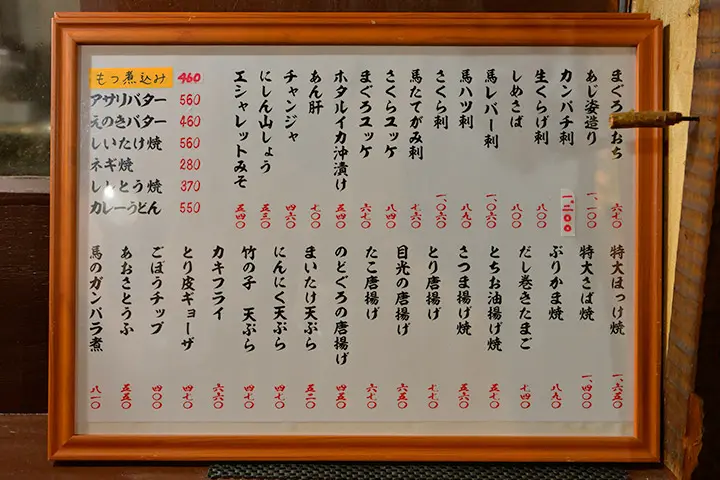 まぐろ おち 六七〇
あじ姿造り 一、一〇〇
カンパチ刺 一、二〇〇
生くらげ刺 八〇〇
しめさば 八〇〇
馬レバー刺 一、〇六〇
馬ハツ刺 八九〇
さくら刺 一、〇六〇
馬たてがみ刺 七六〇
さくらユッケ 八四〇
まぐろユッケ 六七〇
ホタルイカ沖漬け 五四〇
あん肝 七〇〇
チャンジャ 四六〇
にしん山しょう 五三〇
エシャレットみそ 五四〇
もつ煮込み 460
アサリバター 560
えのきバター 460
しいたけ焼 560
ネギ焼 280
ししとう焼 370
カレーうどん 550
特大ほっけ焼 一、六五〇
特大さば焼 一、四〇〇
ぶりかま焼 八九〇
だし巻きたまご 七四〇
とちお油揚げ焼 五七〇
さつま揚げ焼 五六〇
とり唐揚げ 七七〇
目光の唐揚げ 六七〇
たこ唐揚げ 六七〇
のどぐろの唐揚げ 四五〇
まいたけ天ぷら 五二〇
にんにく天ぷら 四七〇
竹の子 天ぷら 四七〇
カキフライ 六六〇
とり皮ギョーザ 四七〇
ごぼうチップ 四〇〇
あおさとうふ 五五〇
馬のガンバラ煮 八一〇